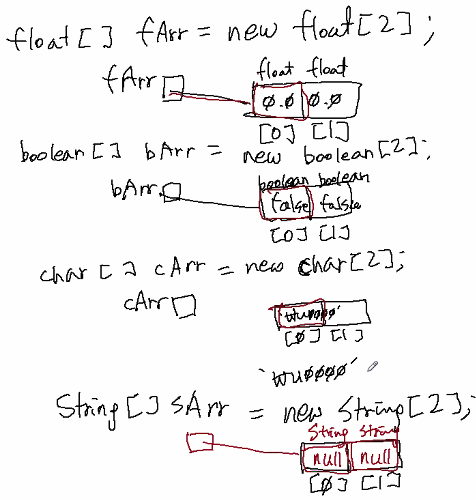 float[] fArr = new float[2];
float float
fArr
0.0 0.0
[0] [1]
boolean[] bArr = new boolean[2];
boolean boolean
bArr
false false
[0] [1]
char[] cArr = new char[2];
cArr
'\u0000'
[0] [1]
'\u0000'
String[] sArr = new String[2];
String String
null null
[0] [1]